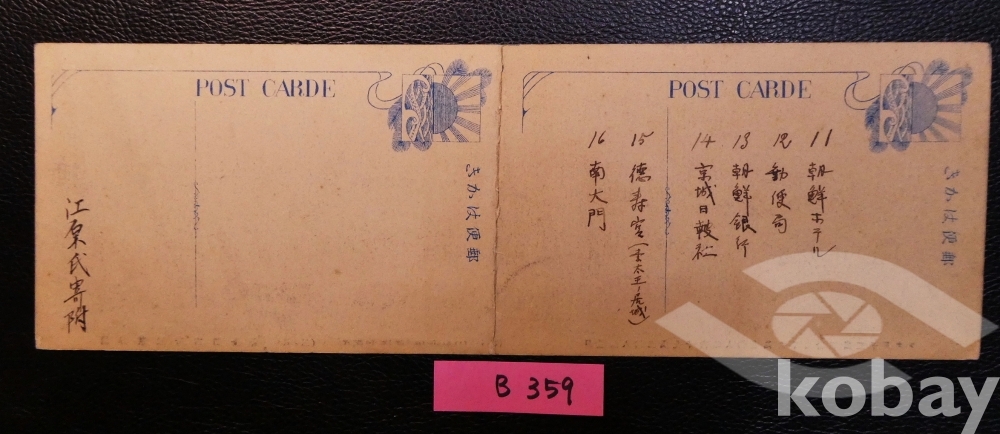 POST CARDE
きかは便郵
江原氏寄附
POST CARDE
きかは便郵
11 朝鮮ホテル
12 郵便局
13 朝鮮銀行
14 京城日報社
15 德寿宮(李太王ノ居城)
16 南大門
B 359
kobay